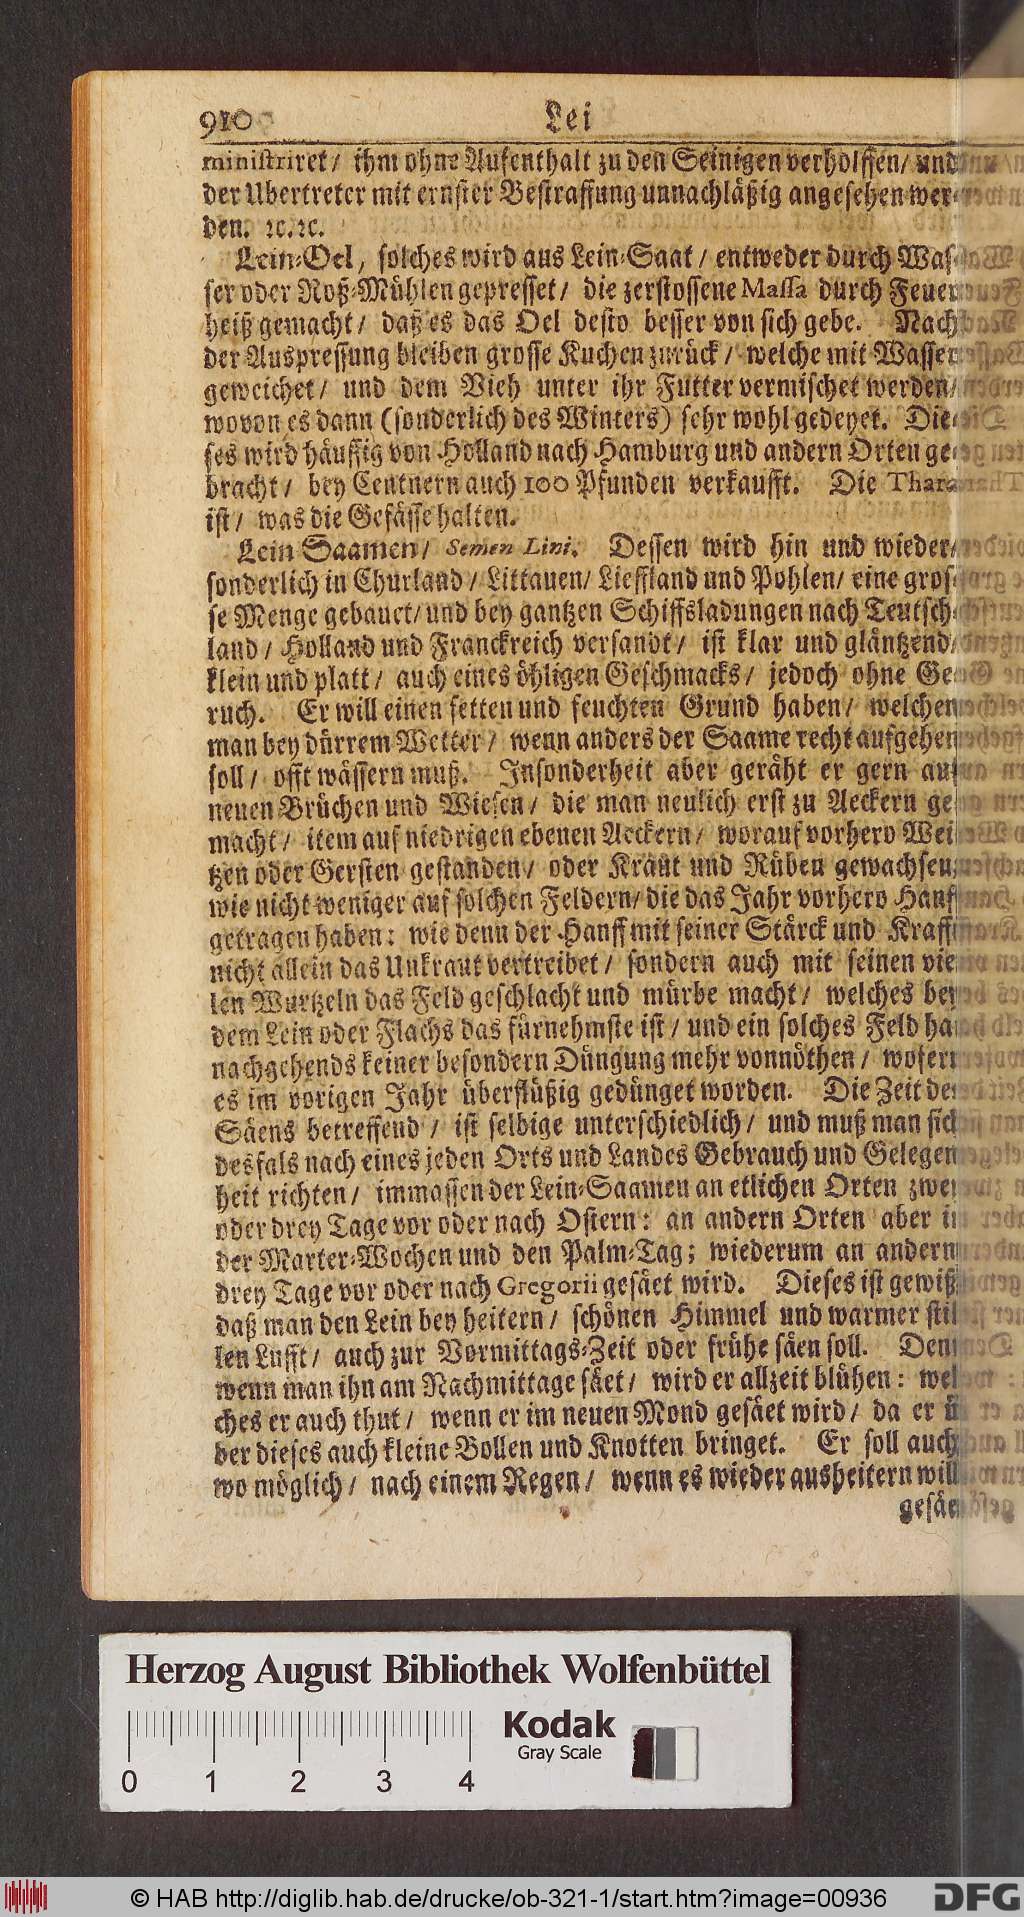 910
Lei
ministriret/ ihm ohne Aufenthalt zu den Seinigen verholffen/ und
der Ubertreter mit ernster Bestraffung unnachläßig angesehen wer-
den. ꝛc. ꝛc.
Lein-Oel, solches wird aus Lein-Saat/ entweder durch Was-
ser oder Roß-Mühlen gepresset/ die zerstossene Massa durch Feuer
heiß gemacht/ daß es das Oel desto besser von sich gebe. Nach
der Auspressung bleiben grosse Kuchen zurück/ welche mit Wasser
geweichet/ und dem Vieh unter ihr Futter vermischet werden/
wovon es dann (sonderlich des Winters) sehr wohl gedeyet. Die-
ses wird häuffig von Holland nach Hamburg und andern Orten ge-
bracht/ bey Centnern auch 100 Pfunden verkaufft. Die Thara
ist/ was die Gefässe halten.
Lein Saamen/ Semen Lini. Dessen wird hin und wieder/
sonderlich in Churland/ Littauen/ Lieffland und Pohlen/ eine gros-
se Menge gebauet/ und bey gantzen Schiffsladungen nach Teutsch-
land/ Holland und Franckreich versandt/ ist klar und gläntzend/
klein und platt/ auch eines öhligen Geschmacks/ jedoch ohne Ge-
ruch. Er will einen fetten und feuchten Grund haben/ welchen
man bey dürrem Wetter/ wenn anders der Saame recht aufgehen
soll/ offt wässern muß. Insonderheit aber geräht er gern auf
neuen Brüchen und Wiesen/ die man neulich erst zu Aeckern ge-
macht/ item auf niedrigen ebenen Aeckern/ worauf vorhero Wei-
tzen oder Gersten gestanden/ oder Kraut und Rüben gewachsen/
wie nicht weniger auf solchen Feldern/ die das Jahr vorhero Hanf
getragen haben: wie denn der Hanff mit seiner Stärck und Krafft
nicht allein das Unkraut vertreibet/ sondern auch mit seinen vie-
len Wurtzeln das Feld geschlacht und mürbe macht/ welches bey
dem Lein oder Flachs das fürnehmste ist/ und ein solches Feld hat
nachgehends keiner besondern Düngung mehr vonnöthen/ wofern
es im vorigen Jahr überflüßig gedünget worden. Die Zeit des
Säens betreffend/ ist selbige unterschiedlich/ und muß man sich
desfals nach eines jeden Orts und Landes Gebrauch und Gelegen-
heit richten/ immassen der Lein-Saamen an etlichen Orten zwey
oder drey Tage vor oder nach Ostern: an andern Orten aber in
der Marter-Wochen und den Palm-Tag; wiederum an andern
drey Tage vor oder nach Gregorii gesäet wird. Dieses ist gewiß
daß man den Lein bey heitern/ schönen Himmel und warmer stil-
len Lufft/ auch zur Vormittags-Zeit oder frühe säen soll. Denn
wenn man ihn am Nachmittage säet/ wird er allzeit blühen: wel-
ches er auch thut/ wenn er im neuen Mond gesäet wird/ da er ü-
der dieses auch kleine Bollen und Knotten bringet. Er soll auch
wo möglich/ nach einem Regen/ wenn es wieder ausheitern will
gesäe
Herzog August Bibliothek Wolfenbüttel
Kodak
Gray Scale
0 1 2 3 4
© HAB http://diglib.hab.de/drucke/ob-321-1/start.htm?image=00936
DFG